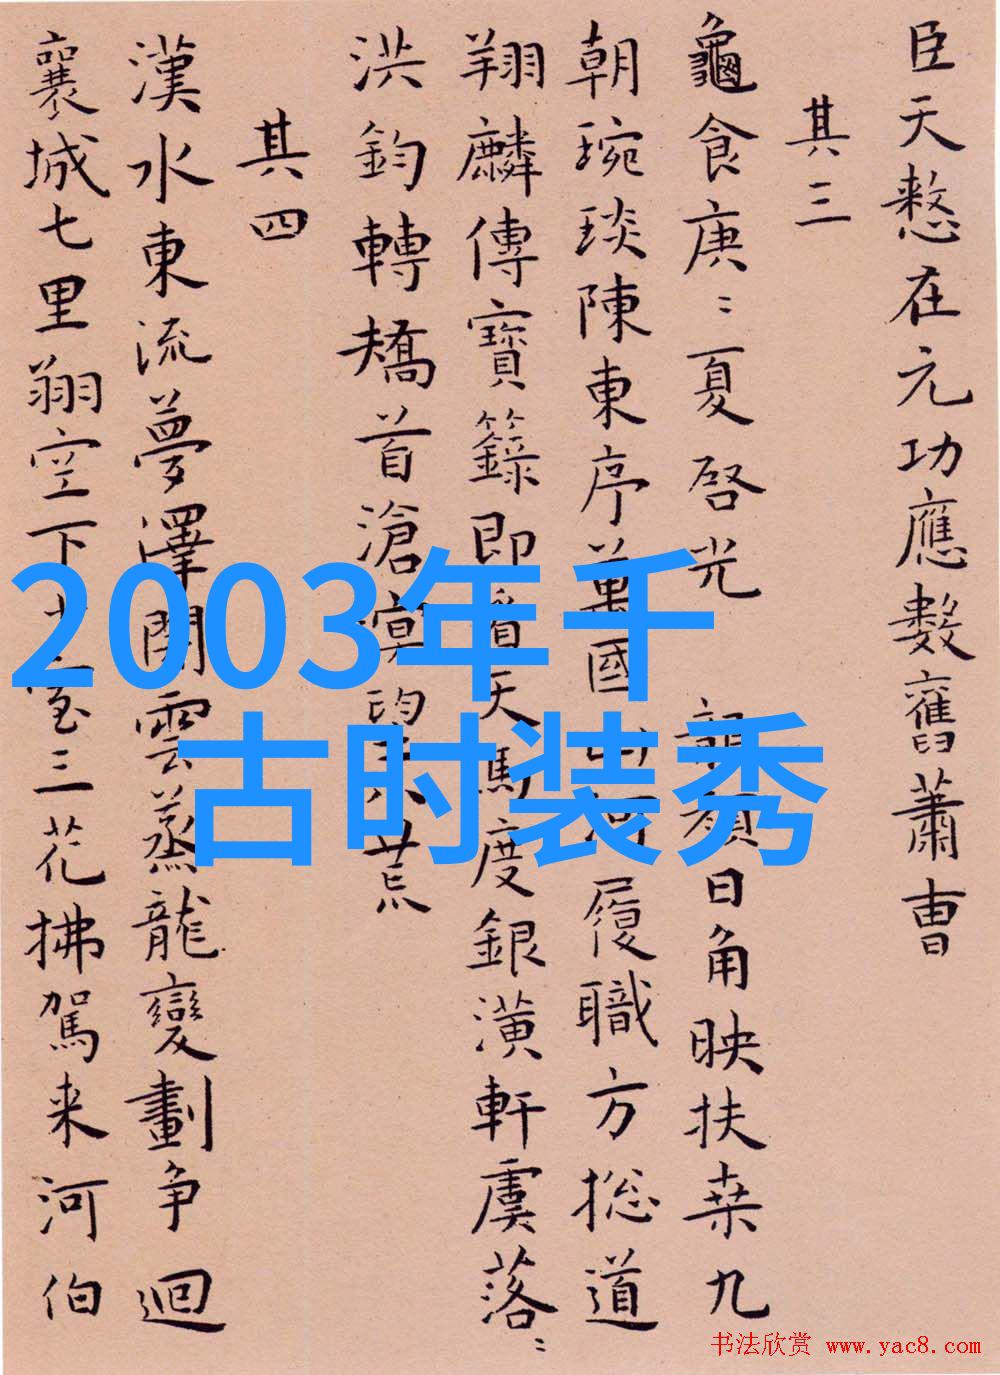 臣天憗在元功應數舊蕭曹
其三
龜食庚〻夏啓光 顏日角映扶桒九
朝琬琰陳東序萬國山河履職方捴道
翔麟傳寶籙即看天馬度銀潢軒虞落〻
洪鈞轉矯首滄溟望八荒
其四
漢水東流夢澤開雲蒸龍變劃争迴
襄城七里翔空下室三花拂駕来河伯
2003年千
古时装秀
书法欣赏 www.yac8.com